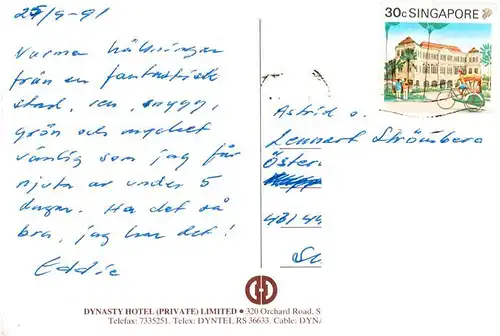 25/9-91
Varma hälsningar
från en fantastisk
stad, ren, snygg,
grön och mycket
vänlig som jag får
njuta av under 5
dagar. Ha det så
bra, jag har det!
Eddie
30c SINGAPORE
Astrid o.
Lennart Strömberg
Öster
481 44
DYNASTY HOTEL (PRIVATE) LIMITED • 320 Orchard Road, S
Telefax: 7335251. Telex: DYNTEL RS 36633. Cable: DYNA